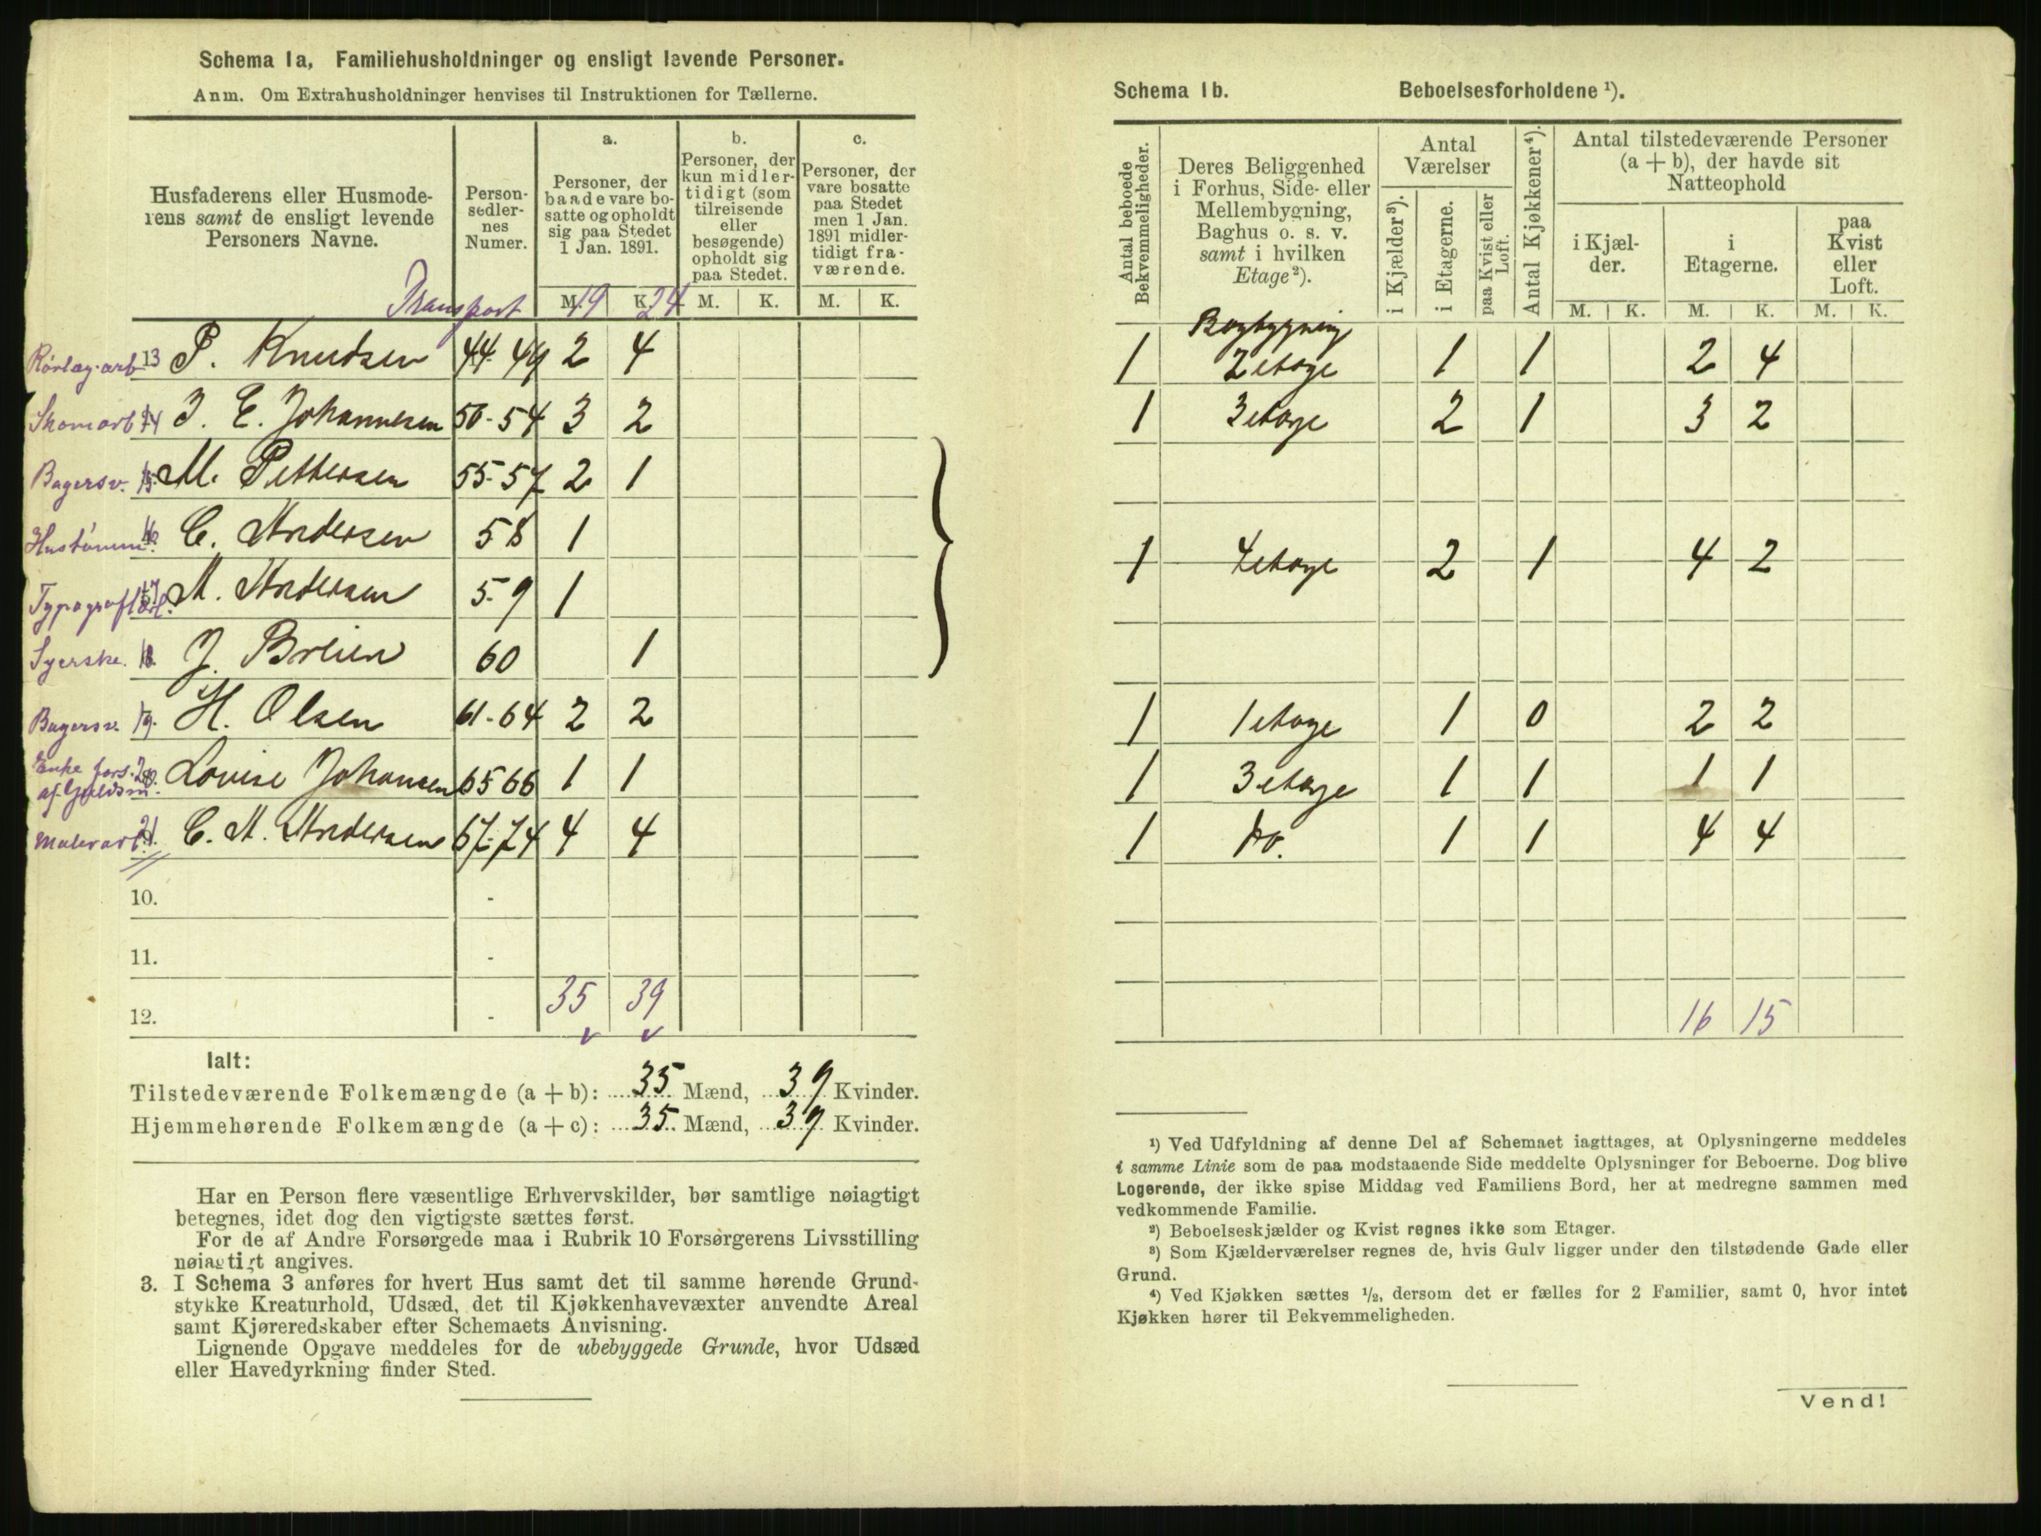 Schema 1a, Familiehusholdninger og ensligt levende Personer.
Anm. Om Extrahusholdninger henvises til Instruktionen for Tællerne.
Husfaderens eller Husmode-
rens samt de ensligt levende
Personers Navne.
Person-
sedler-
nes
Numer.
a.
Personer, der
baade vare bo-
satte og opholdt
sig paa Stedet
1 Jan. 1891.
b.
Personer, der
kun midler-
tidigt (som
tilreisende
eller
besøgende)
opholdt sig
paa Stedet.
c.
Personer, der
vare bosatte
paa Stedet
men 1 Jan.
1891 midler-
tidigt fra-
værende.
M. K. M. K. M. K.
Transport 19 24
Rørlæg.arb 13 P. Knudsen 44-49 2 4
Skomarb 14 J. E. Johannesen 50-54 3 2
Bagersv. 15. M. Pettersen 55-57 2 1
Hustømm. 16. C. Andersen 58 1
17 A. Andersen 59 1
Syerske. 18. J. Breien 60 1
Bagersv. 19. H. Olsen 61-64 2 2
Enke fors. 20.
af Guldsm. Lovise Johansen 65 66 1 1
Malerarb. 21. C. A. Andersen 67-74 4 4
10. -
11. -
12. - 35 39
Ialt:
Tilstedeværende Folkemængde (a + b): 35 Mænd, 39 Kvinder.
Hjemmehørende Folkemængde (a + c): 35 Mænd, 39 Kvinder.
Har en Person flere væsentlige Erhvervskilder, bør samtlige nøiagtigt
betegnes, idet dog den vigtigste sættes først.
For de af Andre Forsørgede maa i Rubrik 10 Forsørgerens Livsstilling
nøiagtigt angives.
3. I Schema 3 anføres for hvert Hus samt det til samme hørende Grund-
stykke Kreaturhold, Udsæd, det til Kjøkkenhavevæxter anvendte Areal
samt Kjøreredskaber efter Schemaets Anvisning.
Lignende Opgave meddeles for de ubebyggede Grunde, hvor Udsæd
eller Havedyrkning finder Sted.
Schema 1b. Beboelsesforholdene ¹).
Antal beboede
Bekvemmeligheder.
Deres Beliggenhed
i Forhus, Side- eller
Mellembygning,
Baghus o. s. v.
samt i hvilken
Etage²).
Antal
Værelser
i Kjælder³).
i Etagerne.
paa Kvist eller
Loft.
Antal Kjøkkener⁴).
Antal tilstedeværende Personer
(a + b), der havde sit
Natteophold
i Kjæl-
der.
i
Etagerne.
paa
Kvist
eller
Loft.
M. K. M. K. M. K.
Bagbygning
1 2 etage 1 1 2 4
1 3 etage 2 1 3 2
1 4 etage 2 1 4 2
1 1 etage 1 0 2 2
1 3 etage 1 1 1 1
1 Do. 1 1 4 4
16 15
¹) Ved Udfyldning af denne Del af Schemaet iagttages, at Oplysningerne meddeles
i samme Linie som de paa modstaaende Side meddelte Oplysninger for Beboerne. Dog blive
Logerende, der ikke spise Middag ved Familiens Bord, her at medregne sammen med
vedkommende Familie.
²) Beboelseskjælder og Kvist regnes ikke som Etager.
³) Som Kjælderværelser regnes de, hvis Gulv ligger under den tilstødende Gade eller
Grund.
⁴) Ved Kjøkken sættes ½, dersom det er fælles for 2 Familier, samt 0, hvor intet
Kjøkken hører til Bekvemmeligheden.
Vend!